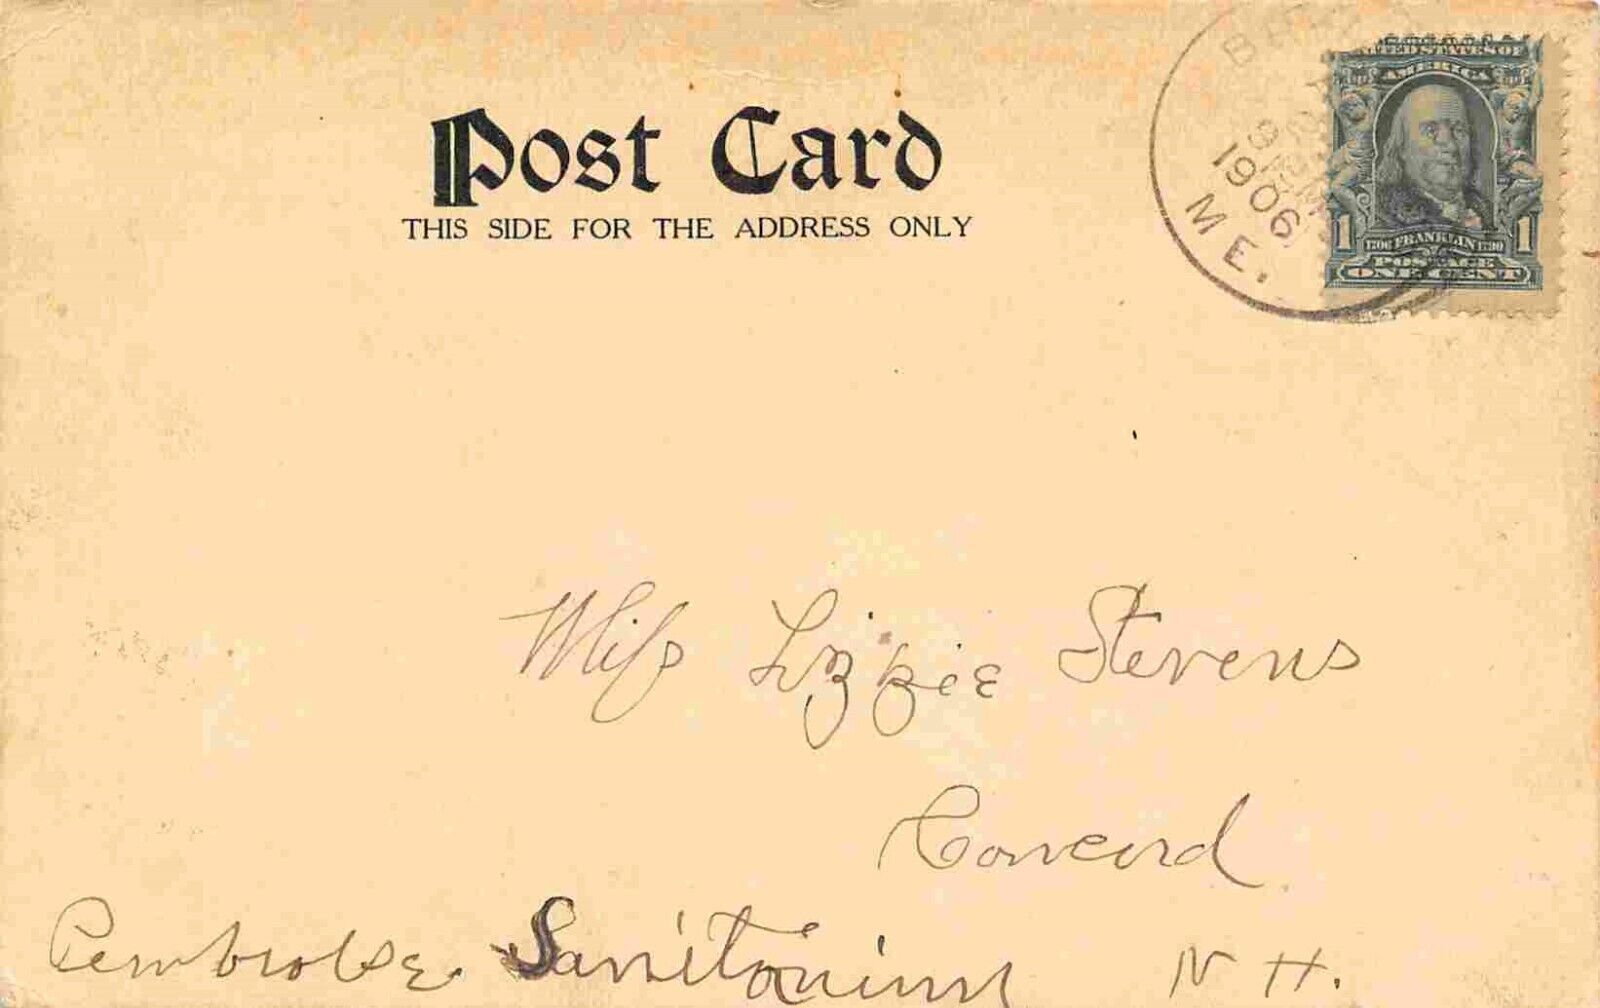 Post Card
THIS SIDE FOR THE ADDRESS ONLY
9
1906
ME.
UNITED STATES OF
AMERICA
1 1706 FRANKLIN 1790 1
POSTAGE
ONE CENT
Miss Lizzie Stevens
Concord
Pembroke Sanitarium N H.